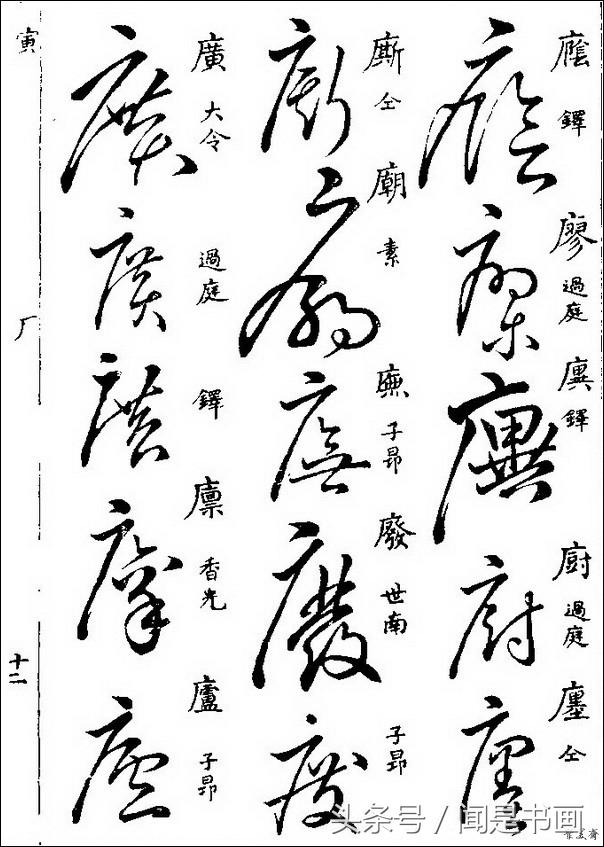 廕 鐸
廖 過庭
廙 鐸
廚 過庭
廛 仝
廝 仝
廟 素
廡 子昂
廢 世南
子昂
廣 大令
過庭
鐸
廩 香光
廬 子昂
寅 厂 十二
头条号 / 闻是书画